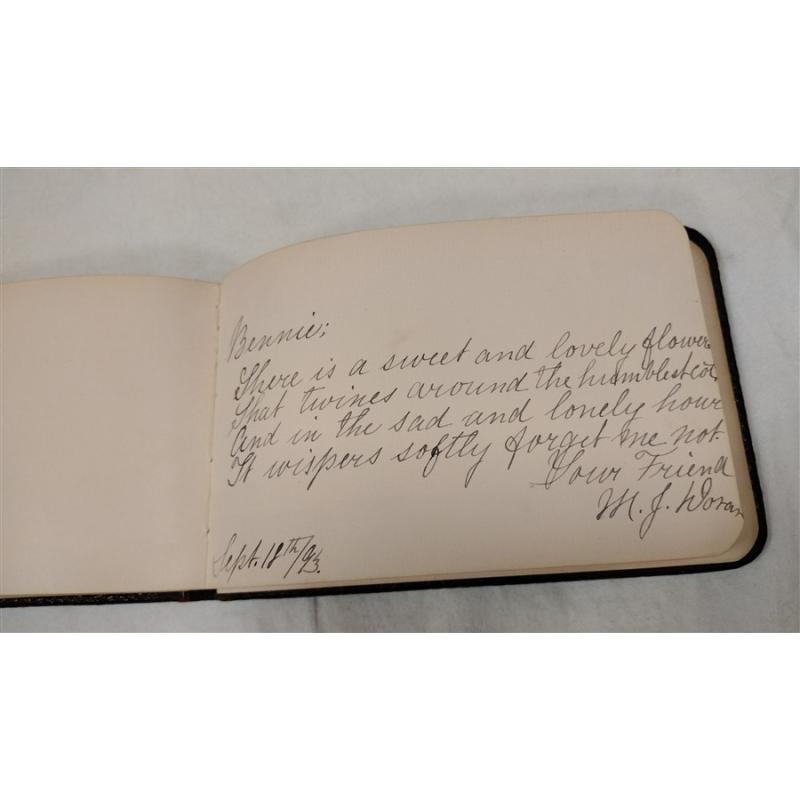 Bennie;
There is a sweet and lovely flower
That twines around the humblest cot,
And in the sad and lonely hour
It wispers softly forget me not.
Your Friend
M. J. Doran
Sept. 18th/93.